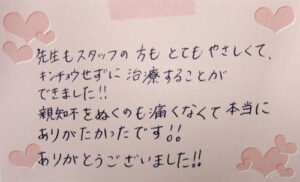 先生もスタッフの方もとてもやさしくて、
キンチョウせずに治療することが
できました!!
親知不をぬくのも痛くなくて本当に
ありがたかったです!!
ありがとうございました!!